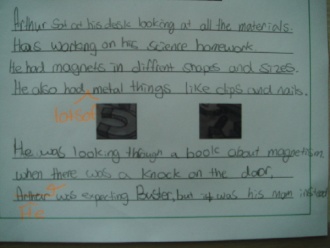 Arthur sat at his desk looking at all the materials.
He was working on his science homework.
He had magnets in diffrent shapes and sizes.
He also had metal things like clips and nails.
lots of
He was looking through a book about magnetism
when there was a knock on the door.
Arthur was expecting Buster, but it was his mom instead